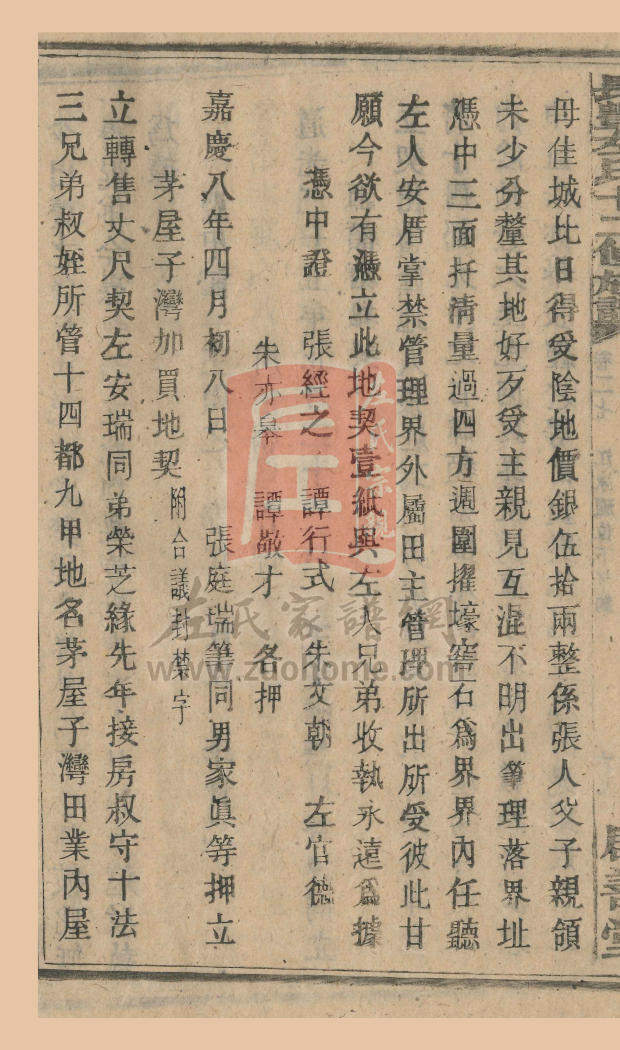 母佳城比日得受陰地價銀伍拾兩整係張人父子親領
未少分釐其地好歹受主親見互混不明出筆理落界址
憑中三面扦清量過四方週圍擢壕窖石爲界界內任聽
左人安厝掌禁管理界外屬田主管理所出所受彼此甘
願今欲有憑立此地契壹紙與左人兄弟收執永遠爲據
憑中證 張經之 譚行式 朱文朝 左官德
朱亦皋 譚敬才 各押
嘉慶八年四月初八日 張庭瑞等同男家眞等押立
茅屋子灣加買地契 附合議封禁字
立轉售丈尺契左安瑞同弟榮芝緣先年接房叔守十法
三兄弟叔姪所管十四都九甲地名茅屋子灣田業內屋
左氏家譜網
www.zuohome.com